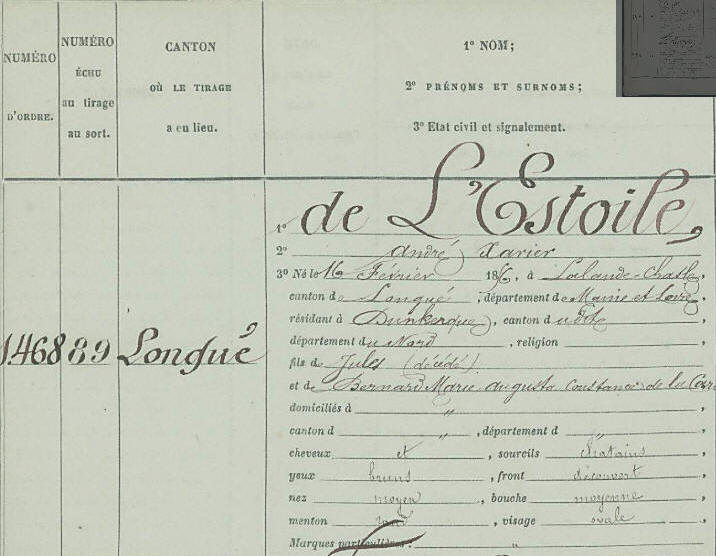 NUMÉRO D'ORDRE.
NUMÉRO ÉCHU au tirage au sort.
CANTON OÙ LE TIRAGE a eu lieu.
1º NOM;
2º PRÉNOMS ET SURNOMS;
3º Etat civil et signalement.
1º de L'Estoile,
2º André, Xavier
3º Né le 16 Février 186, à Lalande-Chasle,
canton de Longué, département de Maine et Loire,
résidant à Dunkerque, canton du dit,
1.468 89 Longué
département du Nord, religion ,
fils de Jules (décédé).
et de Bernard Marie Augusta Constance de la
domiciliés à " ,
canton d " , département d " ,
cheveux et , sourcils chatains
yeux bruns , front découvert
nez moyen , bouche moyenne
menton rond , visage ovale ,
Marques particulières: "